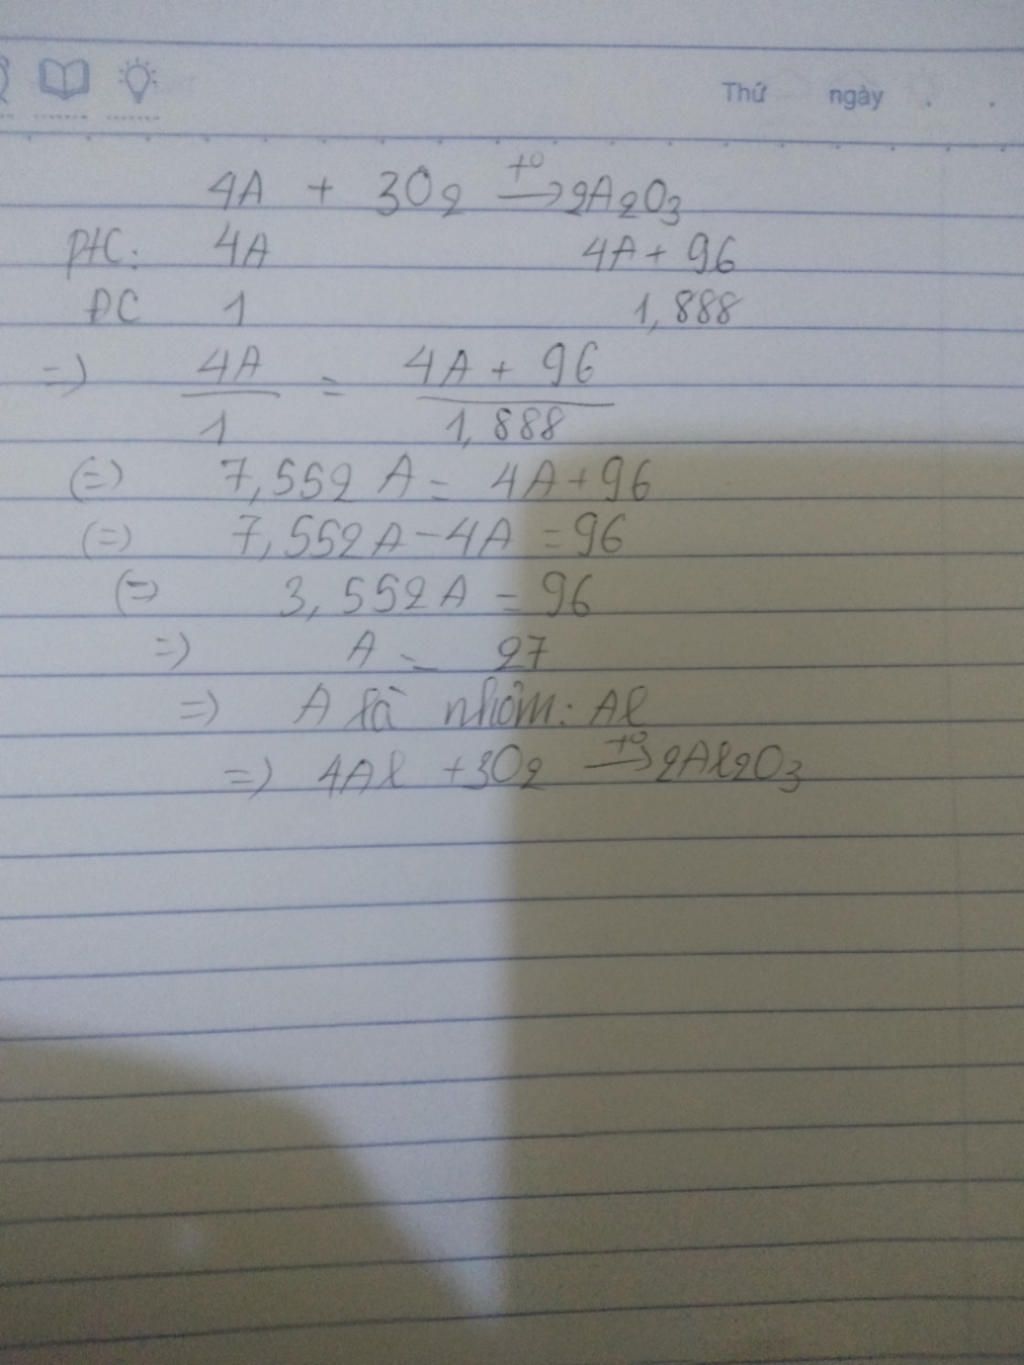 Thứ ngày . .
4A + 3O2 t0→ 2A2O3
PtC: 4A 4A + 96
ĐC 1 1,888
=> 4A/1 = 4A + 96/1,888
(=) 7,552 A = 4A + 96
(=) 7,552A - 4A = 96
(=) 3,552A = 96
=> A = 27
=> A là nhôm: Al
=> 4Al + 3O2 t0→ 2Al2O3